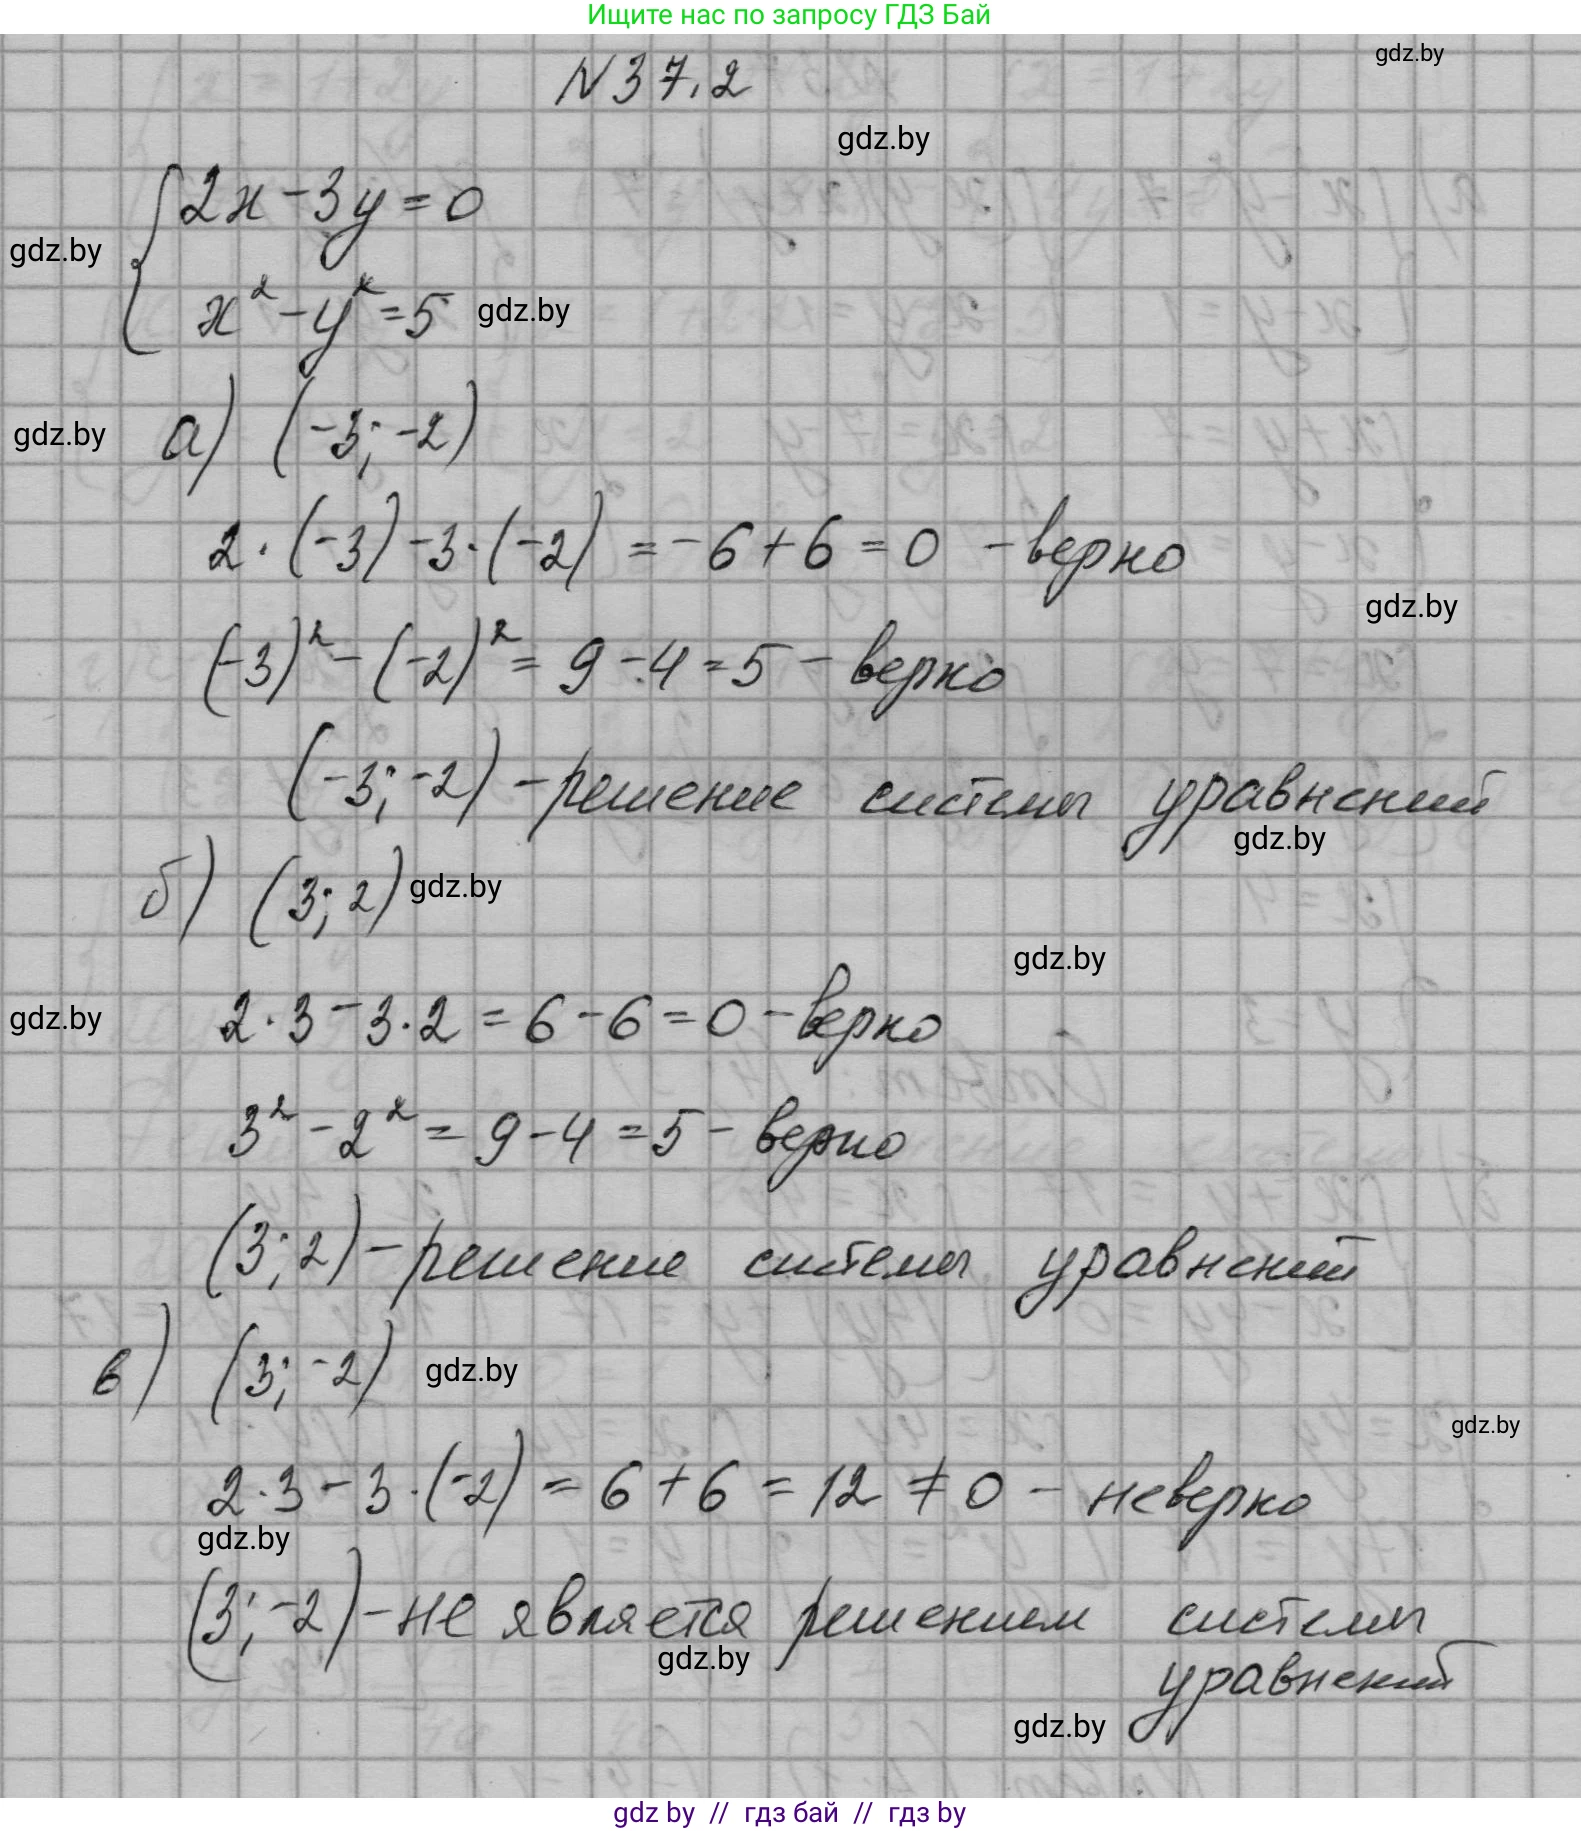 Ищите нас по запросу ГДЗ Бай
gdz.by
N 37.2
gdz.by
2x - 3y = 0
gdz.by
x² - y² = 5 gdz.by
gdz.by а) (-3; -2)
2 · (-3) - 3 · (-2) = -6 + 6 = 0 - верно
gdz.by
(-3)² - (-2)² = 9 - 4 = 5 - верно
(-3; -2) - решение системы уравнений
gdz.by
б) (3; 2) gdz.by
gdz.by
gdz.by 2 · 3 - 3 · 2 = 6 - 6 = 0 - верно
3² - 2² = 9 - 4 = 5 - верно
(3; 2) - решение системы уравнений
в) (3; -2) gdz.by
gdz.by
2 · 3 - 3 · (-2) = 6 + 6 = 12 ≠ 0 - неверно
gdz.by
(3; -2) - не является решением системы
gdz.by
уравнений
gdz.by
gdz by // гдз бай // гдз by